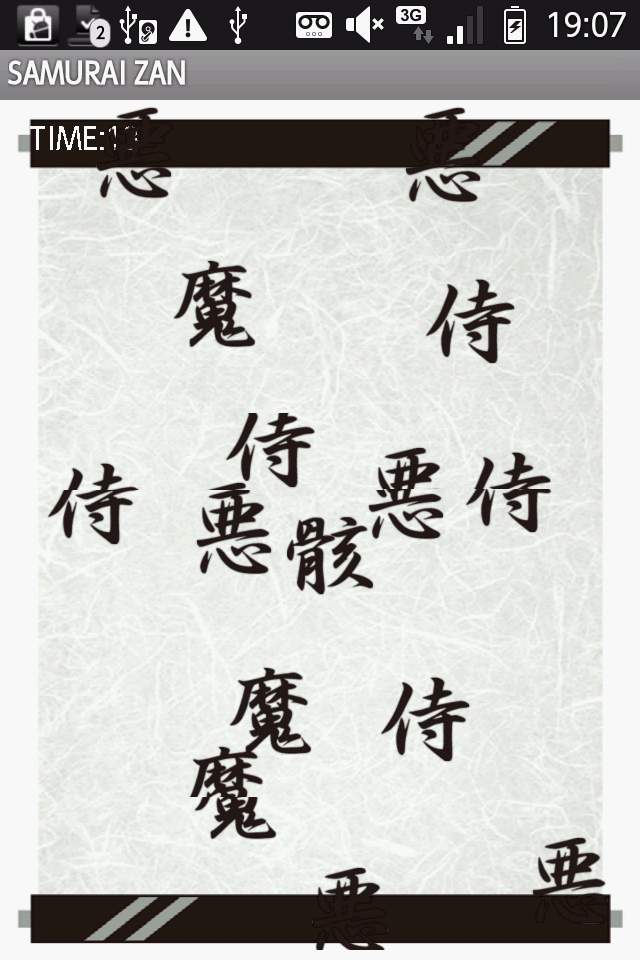 2
3G
19:07
SAMURAI ZAN
TIME:1
悪 悪
魔 侍
侍
侍 悪 侍
悪 骸
魔 侍
魔
悪
悪